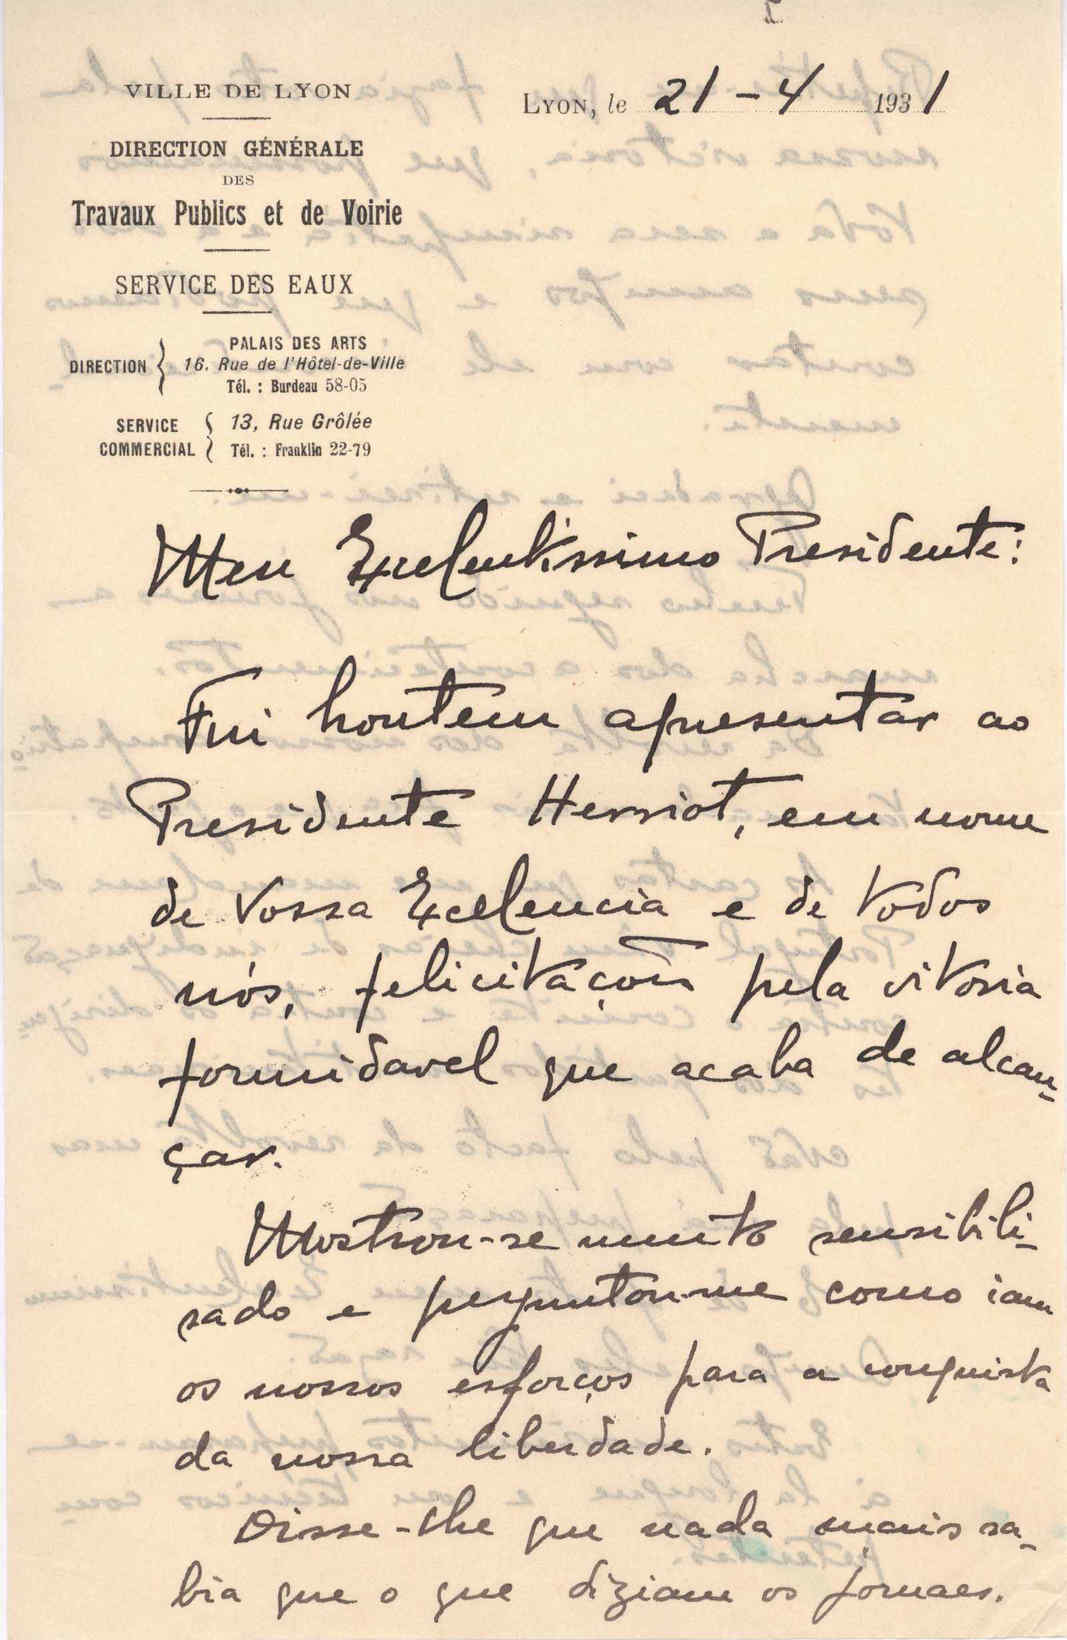 VILLE DE LYON
DIRECTION GÉNÉRALE
DES
Travaux Publics et de Voirie
SERVICE DES EAUX
DIRECTION { PALAIS DES ARTS
16, Rue de l'Hôtel-de-Ville
Tél. : Burdeau 58-05
SERVICE COMMERCIAL { 13, Rue Grôlée
Tél. : Franklin 22-79
LYON, le 21-4 1931
Meu Excelentissimo Presidente:
Fui hontem apresentar ao
Presidente Herriot, em nome
de Vossa Excelencia e de todos
nós, felicitações pela vitoria
formidavel que acaba de alcan-
çar.
Mostrou-se muito sensibili-
sado e perguntou-me como iam
os nossos esforços para a conquista
da nossa liberdade.
Disse-lhe que nada mais sa-
bia que o que diziam os jornaes.